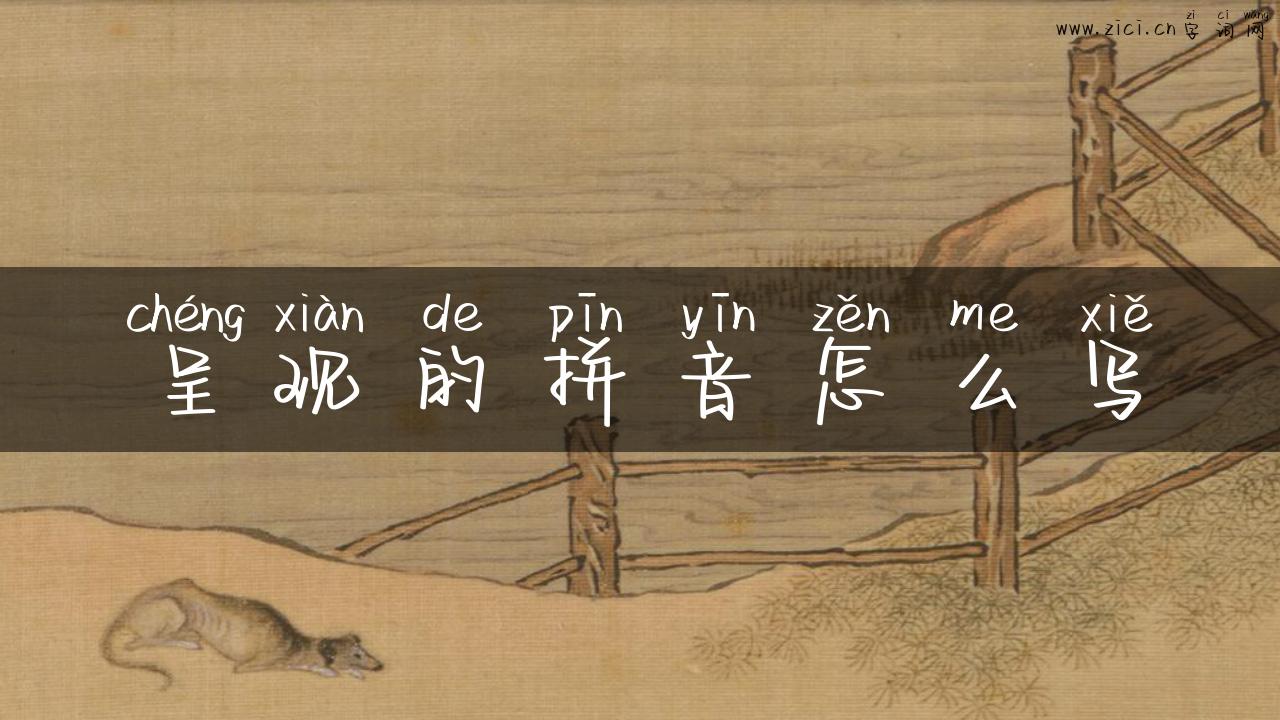 zì cí wǎng
www.zici.cn 字词网
chéng xiàn de pīn yīn zěn me xiě
呈现的拼音怎么写